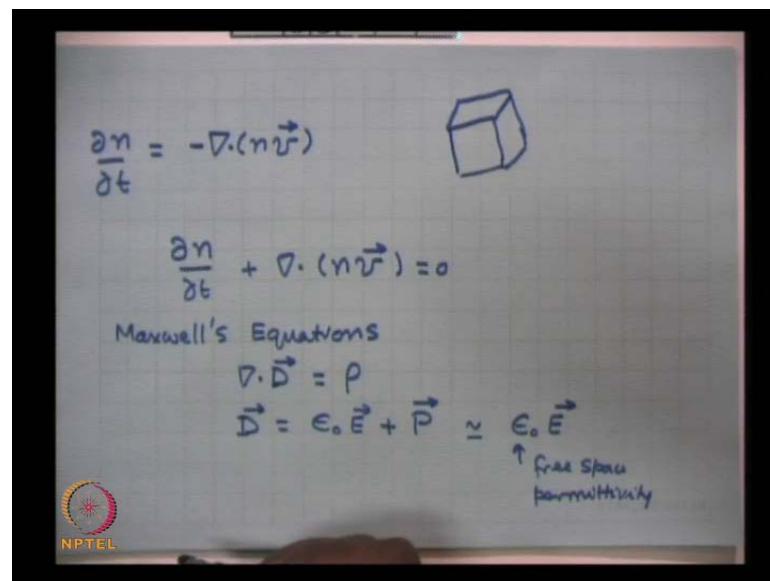 ∂n/∂t = -∇·(n v⃗)
∂n/∂t + ∇·(n v⃗) = 0
Maxwell's Equations
∇·D⃗ = ρ
D⃗ = ϵ₀ E⃗ + P⃗ ≃ ϵ₀ E⃗
↑ free space
permittivity
NPTEL